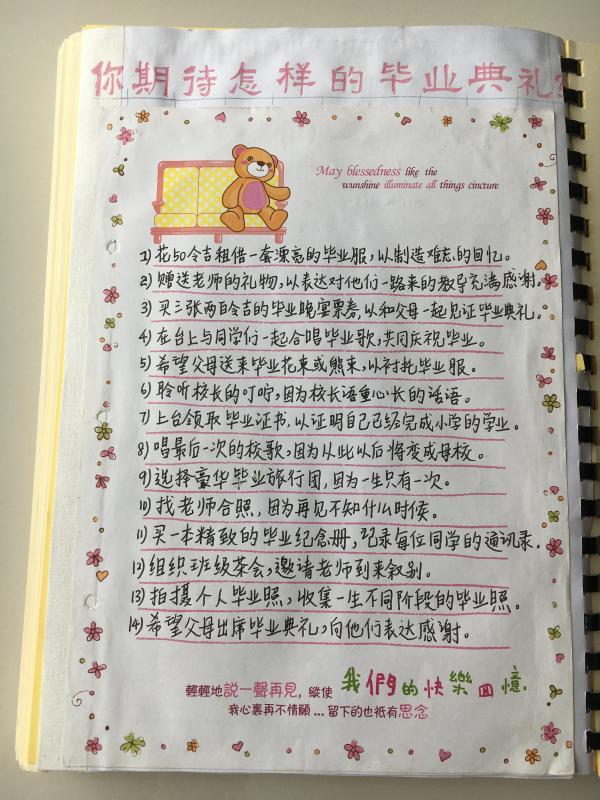 你期待怎样的毕业典礼?
May blessedness like the
wunshine illuminate all things cincture
1) 花50令吉租借一套漂亮的毕业服，以制造难忘的回忆。
2) 赠送老师的礼物，以表达对他们一路来的教导充满感谢。
3) 买三张两百令吉的毕业晚宴票券，以和父母一起见证毕业典礼。
4) 在台上与同学们一起合唱毕业歌，共同庆祝毕业。
5) 希望父母送来毕业花束或熊束，以衬托毕业服。
6) 聆听校长的叮咛，因为校长语重心长的话语。
7) 上台领取毕业证书，以证明自己已经完成小学的学业。
8) 唱最后一次的校歌，因为从此以后将变成母校。
9) 选择豪华毕业旅行团，因为一生只有一次。
10) 找老师合照，因为再见不知什么时候。
11) 买一本精致的毕业纪念册，记录每位同学的通讯录。
12) 组织班级茶会，邀请老师到来叙别。
13) 拍摄个人毕业照，收集一生不同阶段的毕业照。
14) 希望父母出席毕业典礼，向他们表达感谢。
我們的快樂回憶.
輕輕地說一聲再見, 縱使
我心裏再不情願...留下的也祇有思念